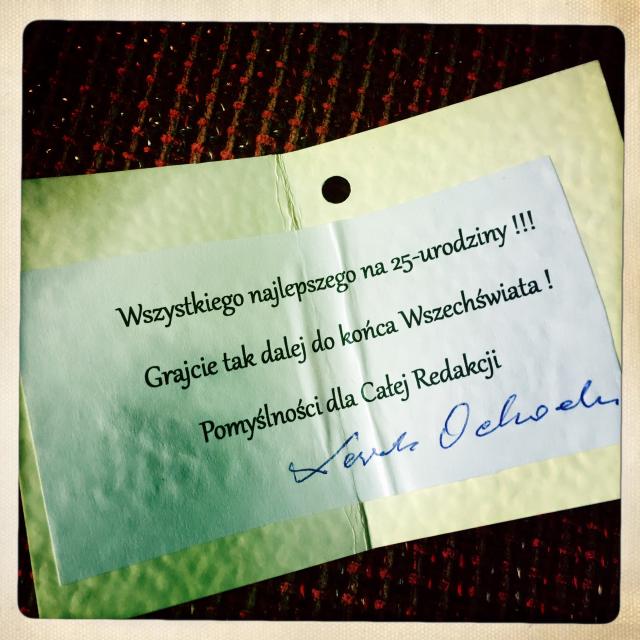 Wszystkiego najlepszego na 25-urodziny !!!
Grajcie tak dalej do końca Wszechświata !
Pomyślności dla Całej Redakcji